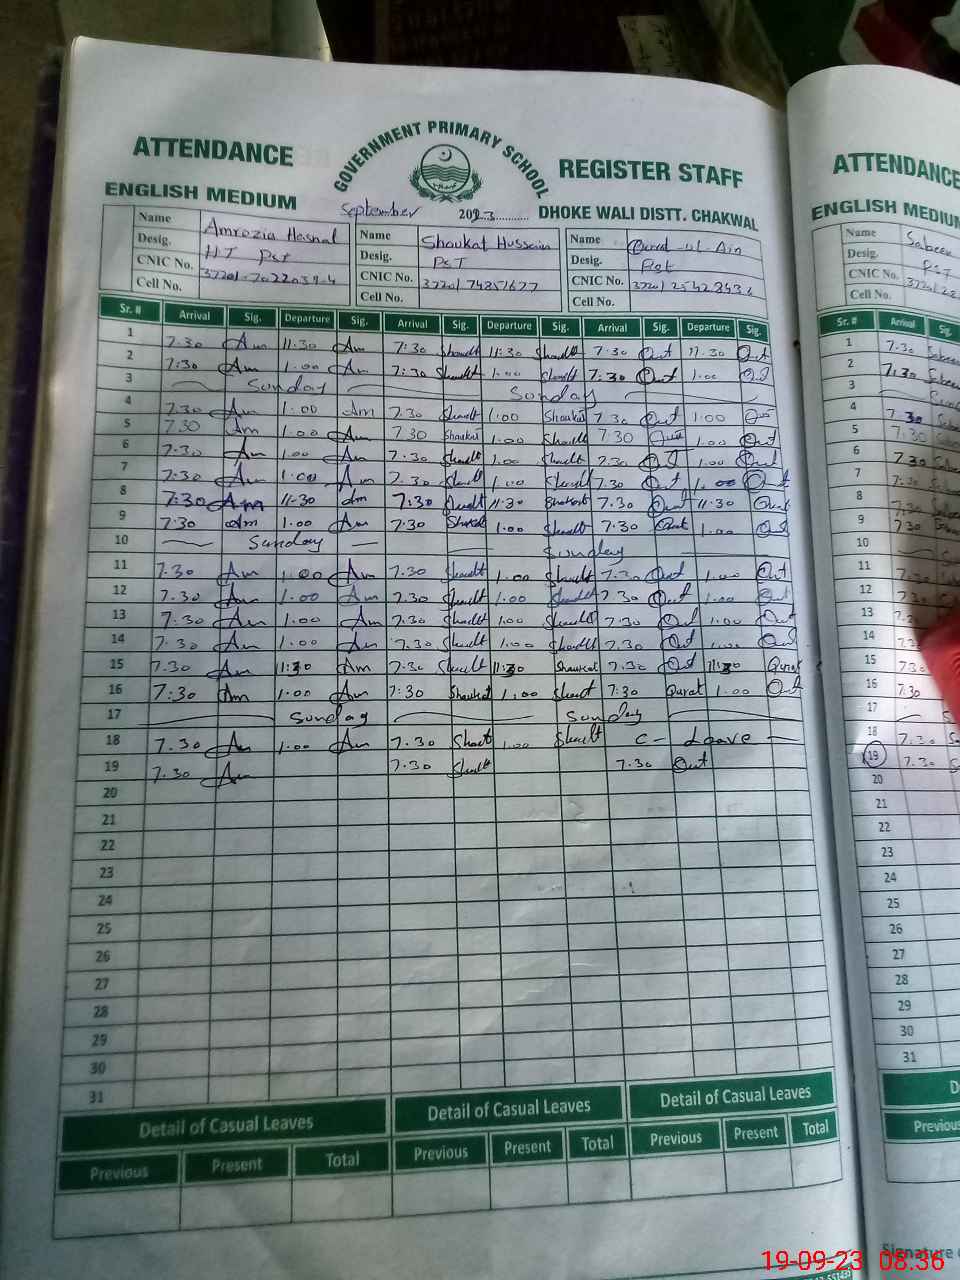 GOVERNMENT PRIMARY SCHOOL
ATTENDANCE REGISTER STAFF
ENGLISH MEDIUM September 2023 DHOKE WALI DISTT. CHAKWAL
Name Amrozia Hasnal Name Shaukat Hussain Name Qurat-ul-Ain
Desig. HT PST Desig. PST Desig. Pst
CNIC No. CNIC No. 37201 74851677 CNIC No.
Cell No. Cell No. Cell No.
Sr. # Arrival Sig. Departure Sig. Arrival Sig. Departure Sig. Arrival Sig. Departure Sig.
1 7.30 Am 11.30 Am 7:30 Shaukt 11:30 Shaukt 7.30 Qut 11.30 Qut
2 7:30 Am 1.00 Am 7:30 Shaukt 1.00 Shaukt 7.30 Qut 1.00 Qut
3 Sunday Sunday
4 7.30 Am 1.00 Am 7.30 Shaukt 1.00 Shaukat 7.30 Qut 1.00 Qut
5 7.30 Am 1.00 Am 7.30 Shaukat 1.00 Shaukt 7.30 Qut 1.00 Qut
6 7.30 Am 1.00 Am 7.30 Shaukt 1.00 Shaukt 7.30 Qut 1.00 Qut
7 7.30 Am 1.00 Am 7.30 Shaukt 1.00 Shaukt 7.30 Qut 1.00 Qut
8 7:30 Am 11-30 Am 7:30 Shaukt 11:30 Shaukat 7.30 Qut 11.30 Qurat
9 7:30 Am 1.00 Am 7:30 Shaukt 1.00 Shaukt 7.30 Qurat 1.00 Qut
10 Sunday Sunday
11 7.30 Am 1.00 Am 7.30 Shaukt 1.00 Shaukt 7.30 Qut 1.00 Qut
12 7.30 Am 1.00 Am 7.30 Shaukt 1.00 Shaukt 7.30 Qut 1.00 Qut
13 7.30 Am 1.00 Am 7.30 Shaukt 1.00 Shaukt 7.30 Qut 1.00 Qut
14 7.30 Am 1.00 Am 7.30 Shaukt 1.00 Shaukt 7.30 Qut 1.00 Qut
15 7.30 Am 11:30 Am 7.30 Shaukt 11:30 Shaukat 7.30 Qut 11:30 Qurat
16 7:30 Am 1.00 Am 7:30 Shaukat 1.00 Shaukt 7:30 Qurat 1.00 Qut
17 Sunday Sunday
18 7.30 Am 1.00 Am 7.30 Shaukt 1.00 Shaukt C- Leave
19 7.30 Am 7.30 Shaukt 7.30 Qut
20
21
22
23
24
25
26
27
28
29
30
31
Detail of Casual Leaves Detail of Casual Leaves Detail of Casual Leaves
Previous Present Total Previous Present Total Previous Present Total
ATTENDANCE
ENGLISH MEDIUM
Name
Desig. PST
CNIC No.
Cell No.
Sr. # Arrival Sig.
1 7.30
2 7:30
3
4 7.30
5 7.30
6 7.30
7 7.30
8 7.30
9 7.30
10
11 7.30
12 7.30
13
14
15 7.30
16 7.30
17
18 7.30
19 7.30
20
21
22
23
24
25
26
27
28
29
30
31
Previous
Signature
19-09-23 08:36